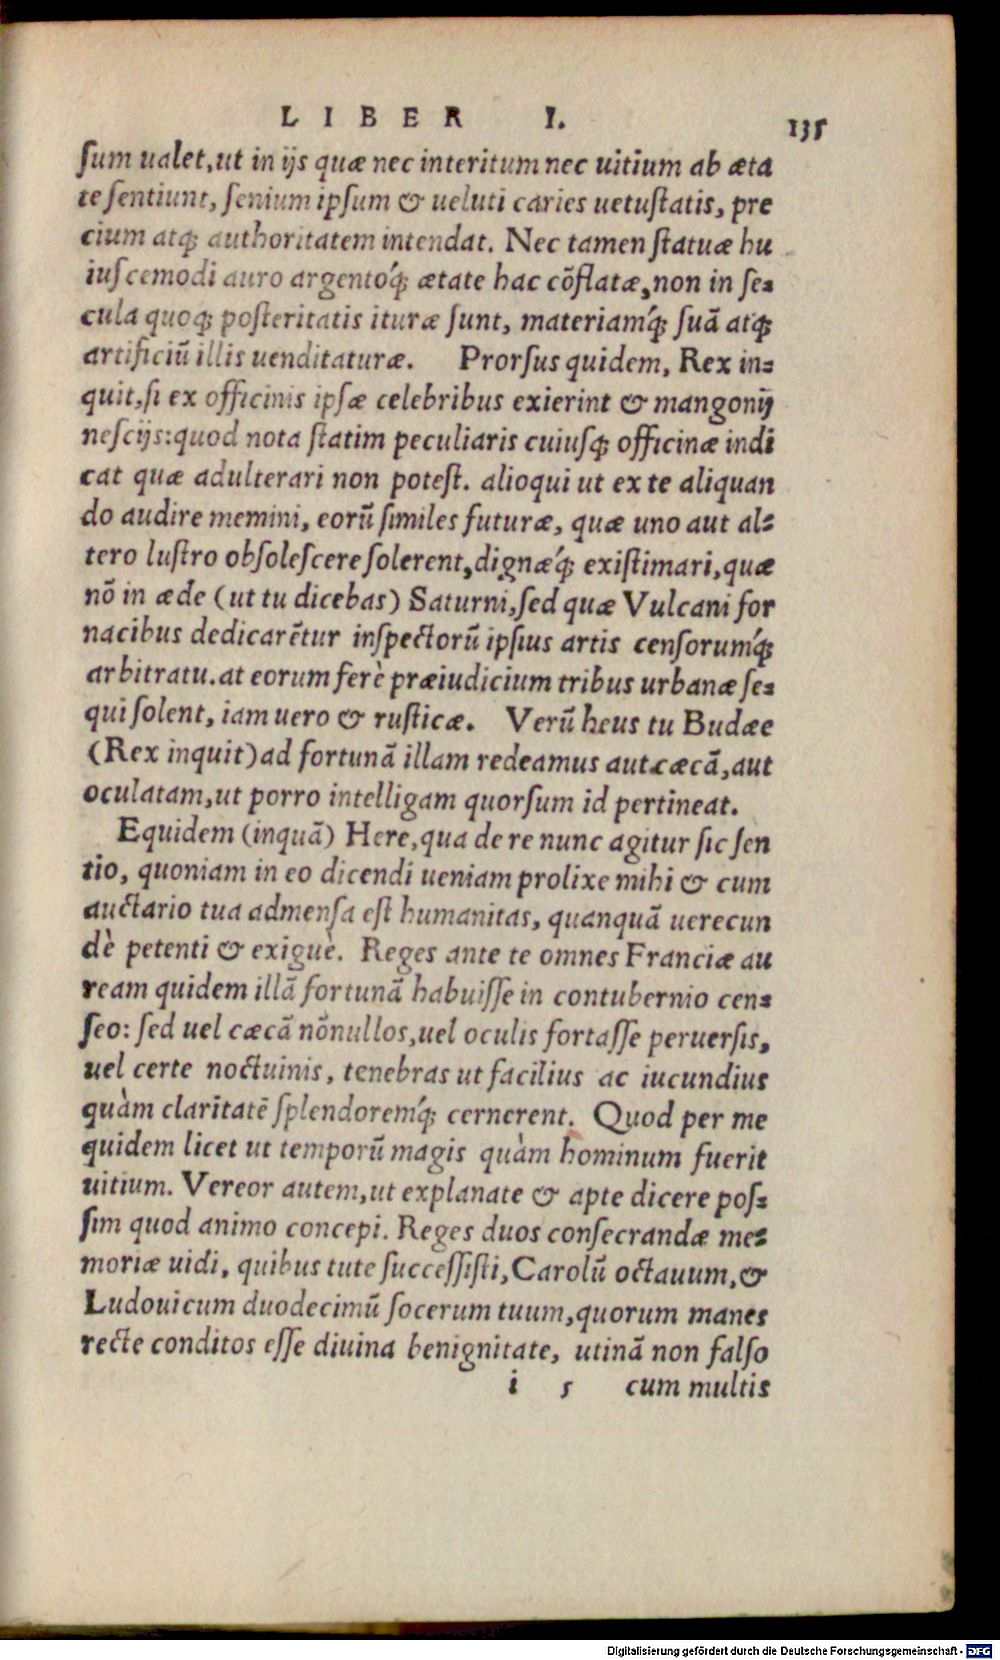 LIBER I. 135
ſum ualet, ut in ijs quæ nec interitum nec uitium ab æta
te ſentiunt, ſenium ipſum & ueluti caries uetuſtatis, pre
cium atq; authoritatem intendat. Nec tamen ſtatuæ hu
iuſcemodi auro argentóq; ætate hac cõflatæ, non in ſe⸗
cula quoq; poſteritatis ituræ ſunt, materiamq́; ſuã atq;
artificiũ illis uenditaturæ. Prorſus quidem, Rex in⸗
quit, ſi ex officinis ipſæ celebribus exierint & mangonij
neſcijs: quod nota ſtatim peculiaris cuiuſq; officinæ indi
cat quæ adulterari non poteſt. alioqui ut ex te aliquan
do audire memini, eorũ ſimiles futuræ, quæ uno aut al⸗
tero luſtro obſoleſcere ſolerent, dignæq́; exiſtimari, quæ
nõ in æde (ut tu dicebas) Saturni, ſed quæ Vulcani for
nacibus dedicarẽtur inſpectorũ ipſius artis cenſorumq́;
arbitratu. at eorum ferè præiudicium tribus urbanæ ſe⸗
qui ſolent, iam uero & ruſticæ. Verũ heus tu Budæe
(Rex inquit) ad fortunã illam redeamus aut cæcã, aut
oculatam, ut porro intelligam quorſum id pertineat.
Equidem (inquã) Here, qua de re nunc agitur ſic ſen
tio, quoniam in eo dicendi ueniam prolixe mihi & cum
auctario tua admenſa eſt humanitas, quanquã uerecun
dè petenti & exiguè. Reges ante te omnes Franciæ au
ream quidem illã fortunã habuiſſe in contubernio cen⸗
ſeo: ſed uel cæcã nõnullos, uel oculis fortaſſe peruerſis,
uel certe noctuinis, tenebras ut facilius ac iucundius
quàm claritatẽ ſplendoremq́; cernerent. Quod per me
quidem licet ut temporũ magis quàm hominum fuerit
uitium. Vereor autem, ut explanate & apte dicere poſ⸗
ſim quod animo concepi. Reges duos conſecrandæ me⸗
moriæ uidi, quibus tute ſucceſſiſti, Carolũ octauum, &
Ludouicum duodecimũ ſocerum tuum, quorum manes
recte conditos eſſe diuina benignitate, utinã non falſo
i 5 cum multis
Digitalisierung gefördert durch die Deutsche Forschungsgemeinschaft - DFG